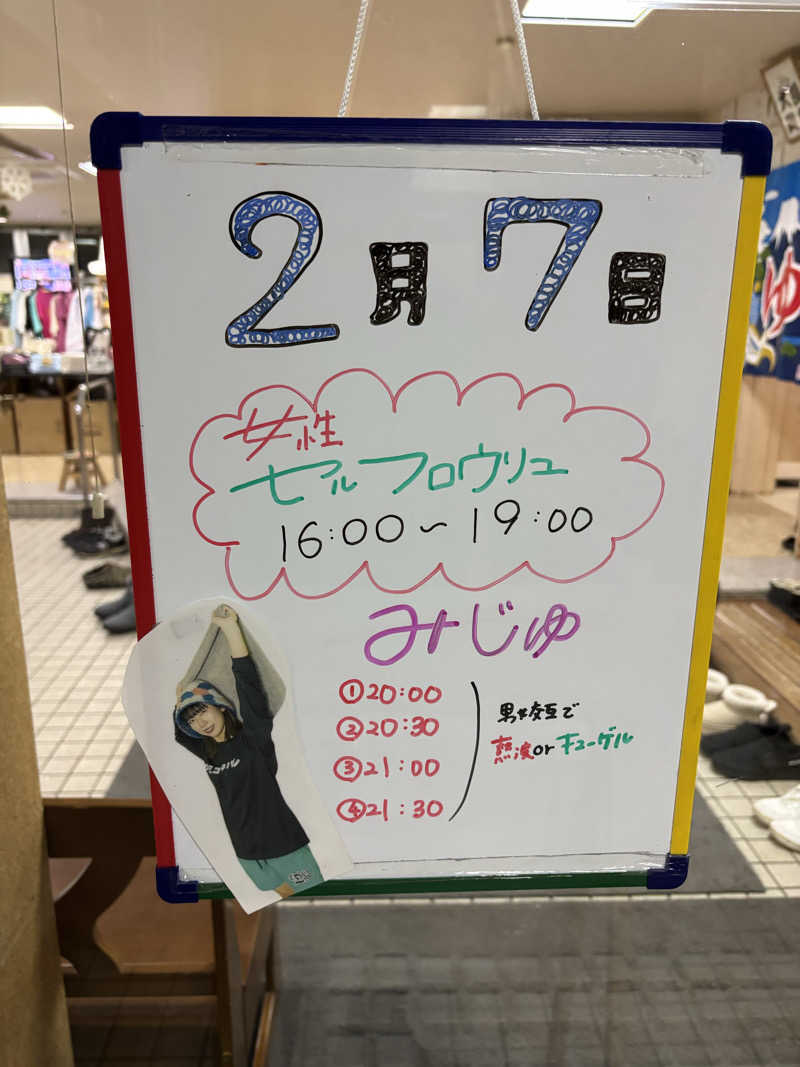 2月7日
女性
セルフロウリュ
16:00～19:00
みじゅ
①20:00
②20:30
③21:00
④21:30
男女交互で
熱波orキューゲル
ゆ